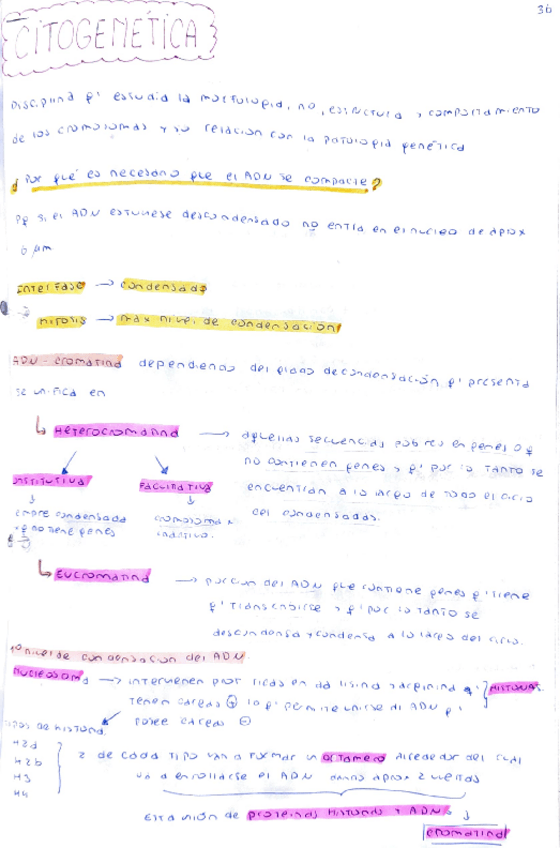 36
CITOGENÉTICA
Disciplina q' estudia la morfología, no, estructura y comportamiento
de los cromosomas y su relación con la patología genética
¿Por qué es necesario que el ADN se compacte?
Pq si el ADN estuviese descondensado no entra en el nucleo de aprox
6 μm
Interfase → condensado
mitosis → max nivel de condensación
ADN - cromatina dependiendo del grado de condensación q' presenta
se unifica en
↳ Heterocromatina → aquellas secuencias pobres en genes o q
no contienen genes y q' por lo TANTO se
encuentran a lo largo de todo el ciclo
cel condensadas.
nstitutiva Facultativa
↓ ↓
empre condensada cromosoma x
xq no tiene genes inactivo.
↳ Eucromatina → porcion del ADN que contiene genes q' tiene
q' transcribirse y q' por lo tanto se
descondensa y condensa a lo largo del ciclo.
1º nivel de condensacion del ADN.
Nucleosoma → intervienen prot ricas en aa lisina y arginina q' } HISTONAS.
tenen cargas ⊕ lo q' permite unirse al ADN q'
posee cargas ⊖
Tipos de histona.
H2a
H2b
H3
H4
2 de cada tipo van a formar un octamero alrededor del cual
va a enrollarse el ADN dando aprox 2 vueltas
Esta unión de proteinas Histonas y ADN ↓
cromatina